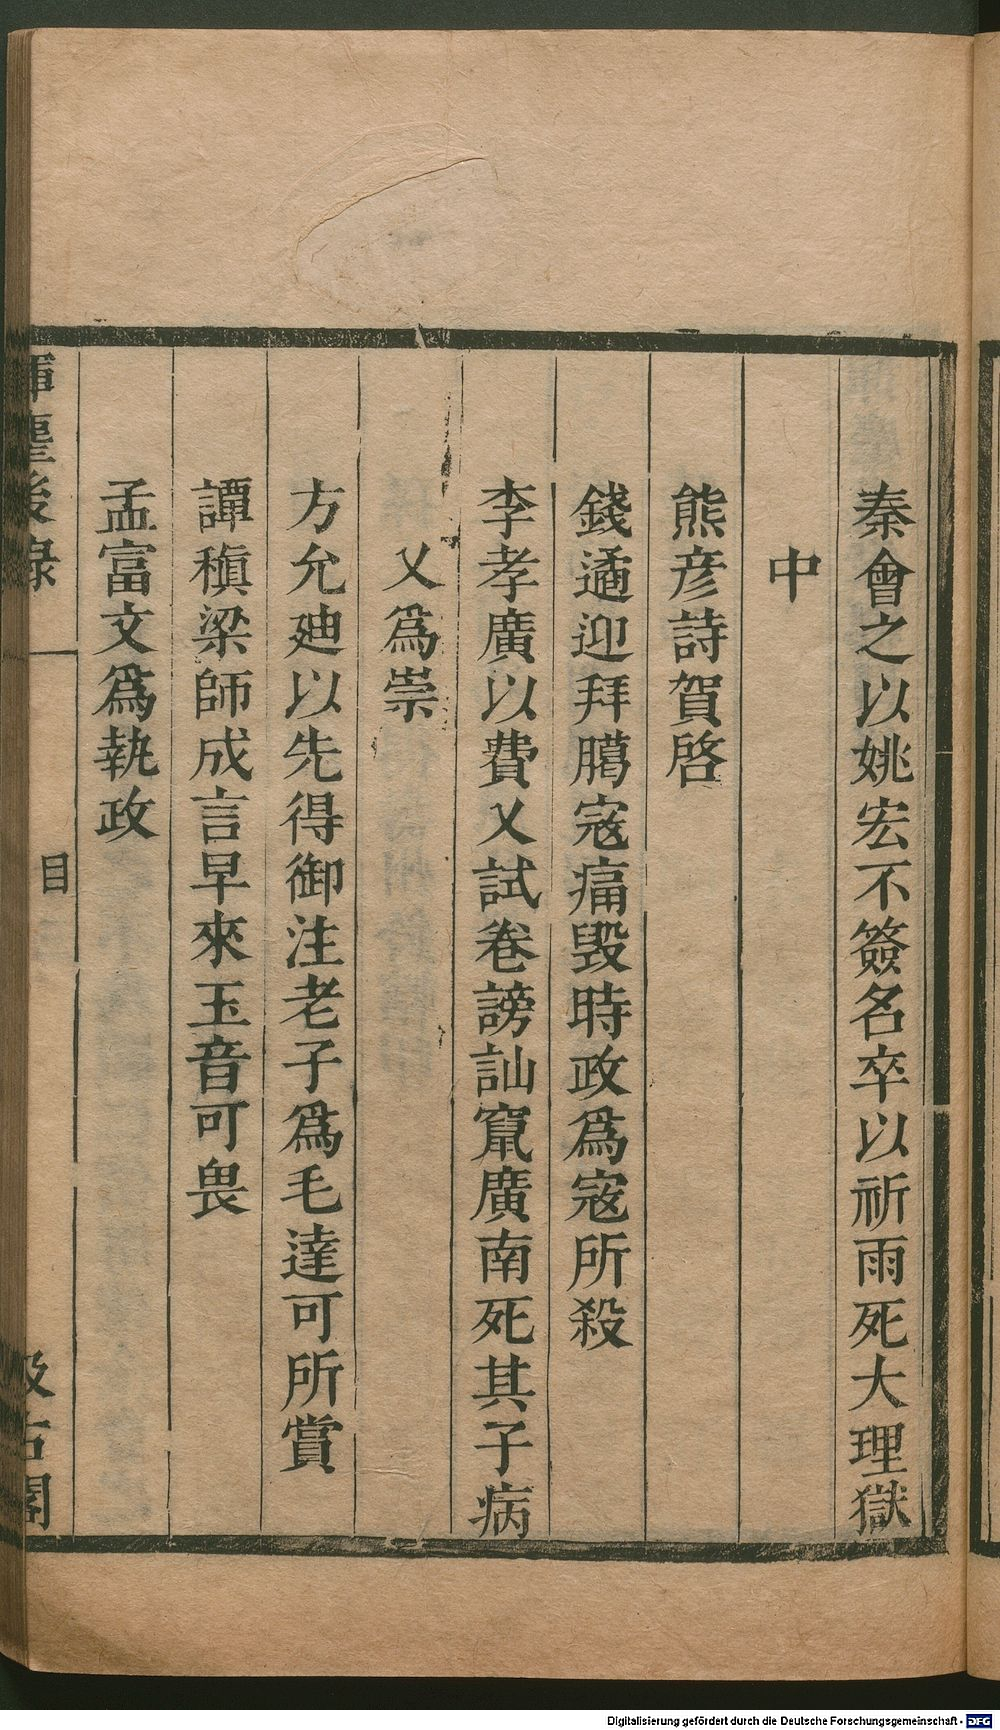 秦會之以姚宏不簽名卒以祈雨死大理獄
中
熊彦詩賀啓
錢遹迎拜臈寇痛毀時政爲寇所殺
李孝廣以費乂試卷謗訕竄廣南死其子病
乂爲崇
方允廸以先得御注老子爲毛達可所賞
譚稹梁師成言早來玉音可畏
孟富文爲執政
揮麈後錄
目
汲古閣
Digitalisierung gefördert durch die Deutsche Forschungsgemeinschaft - DFG